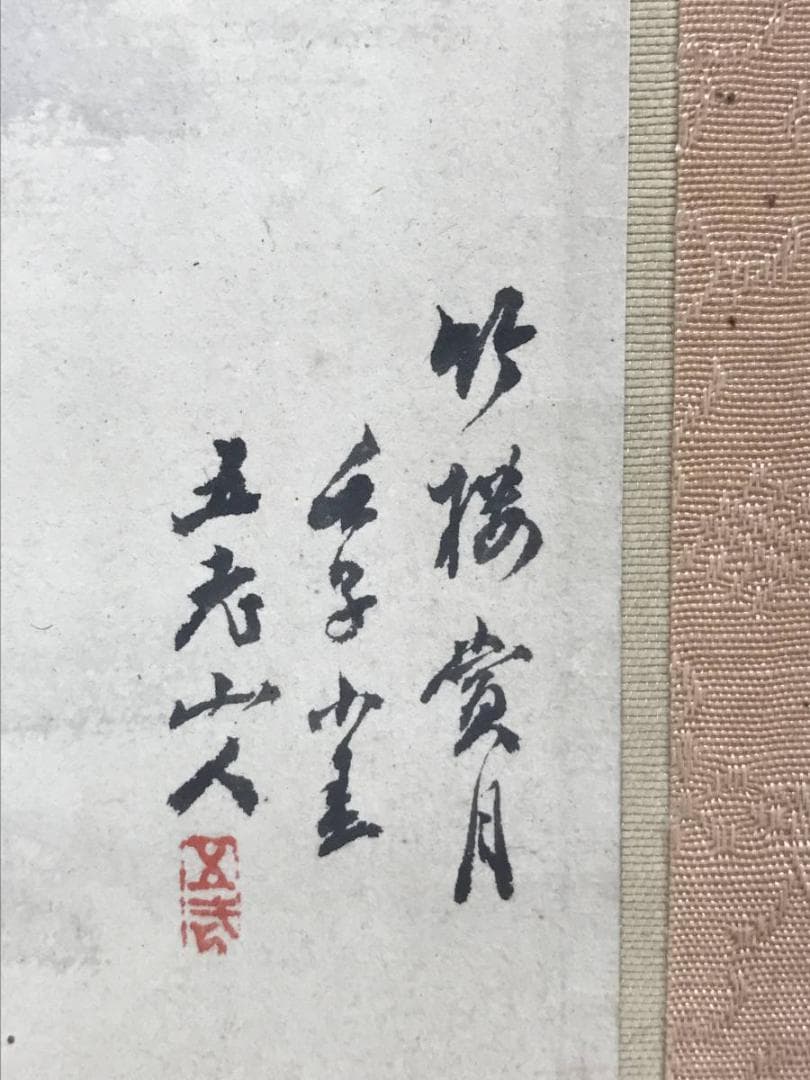 竹楼賞月
壬子小
五老山人
五老